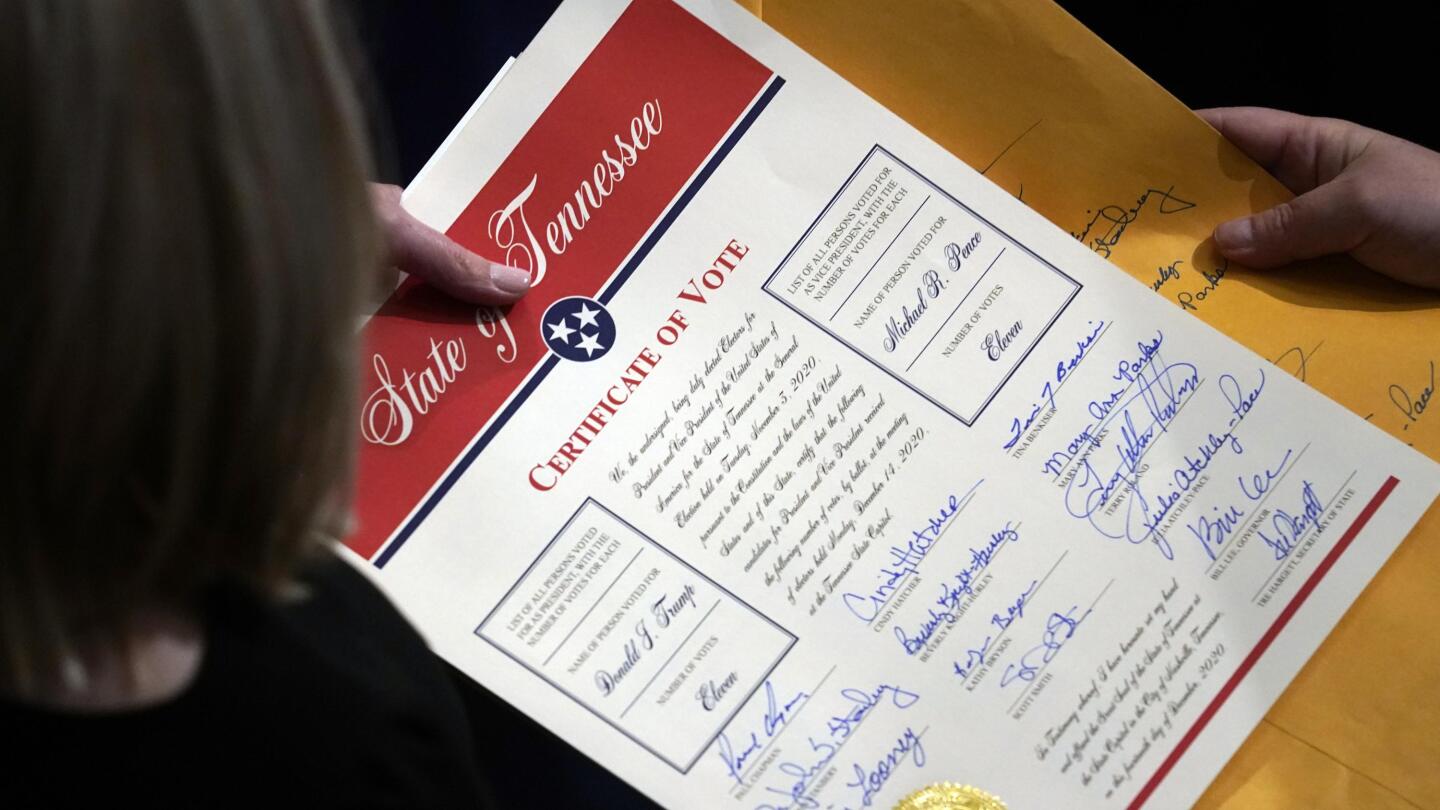 State of Tennessee
CERTIFICATE OF VOTE
We, the undersigned, being duly elected Electors for
President and Vice President of the United States of
America for the State of Tennessee at the General
Election held on Tuesday, November 3, 2020,
pursuant to the Constitution and the laws of the United
States and of this State, certify that the following
candidates for President and Vice President received
the following number of votes, by ballot, at the meeting
of electors held Monday, December 14, 2020,
at the Tennessee State Capitol.
LIST OF ALL PERSONS VOTED
FOR AS PRESIDENT, WITH THE
NUMBER OF VOTES FOR EACH
NAME OF PERSON VOTED FOR
Donald J. Trump
NUMBER OF VOTES
Eleven
LIST OF ALL PERSONS VOTED FOR
AS VICE PRESIDENT, WITH THE
NUMBER OF VOTES FOR EACH
NAME OF PERSON VOTED FOR
Michael R. Pence
NUMBER OF VOTES
Eleven
PAUL CHAPMAN
John
STANBERY
Looney
Cindy Hatcher
CINDY HATCHER
Beverly Knight-Hurley
BEVERLY KNIGHT-HURLEY
KATHY BRYSON
SCOTT SMITH
TINA BENKISER
Mary Ann Parks
MARY ANN PARKS
TERRY ROLAND
Julia Atchley-Pace
JULIA ATCHLEY-PACE
Bill Lee
BILL LEE, GOVERNOR
Tre Hargett
TRE HARGETT, SECRETARY OF STATE
In Testimony whereof, I have hereunto set my hand
and affixed the Great Seal of the State of Tennessee at
the State Capitol in the City of Nashville, Tennessee,
on the fourteenth day of December, 2020
Parks
-Pace